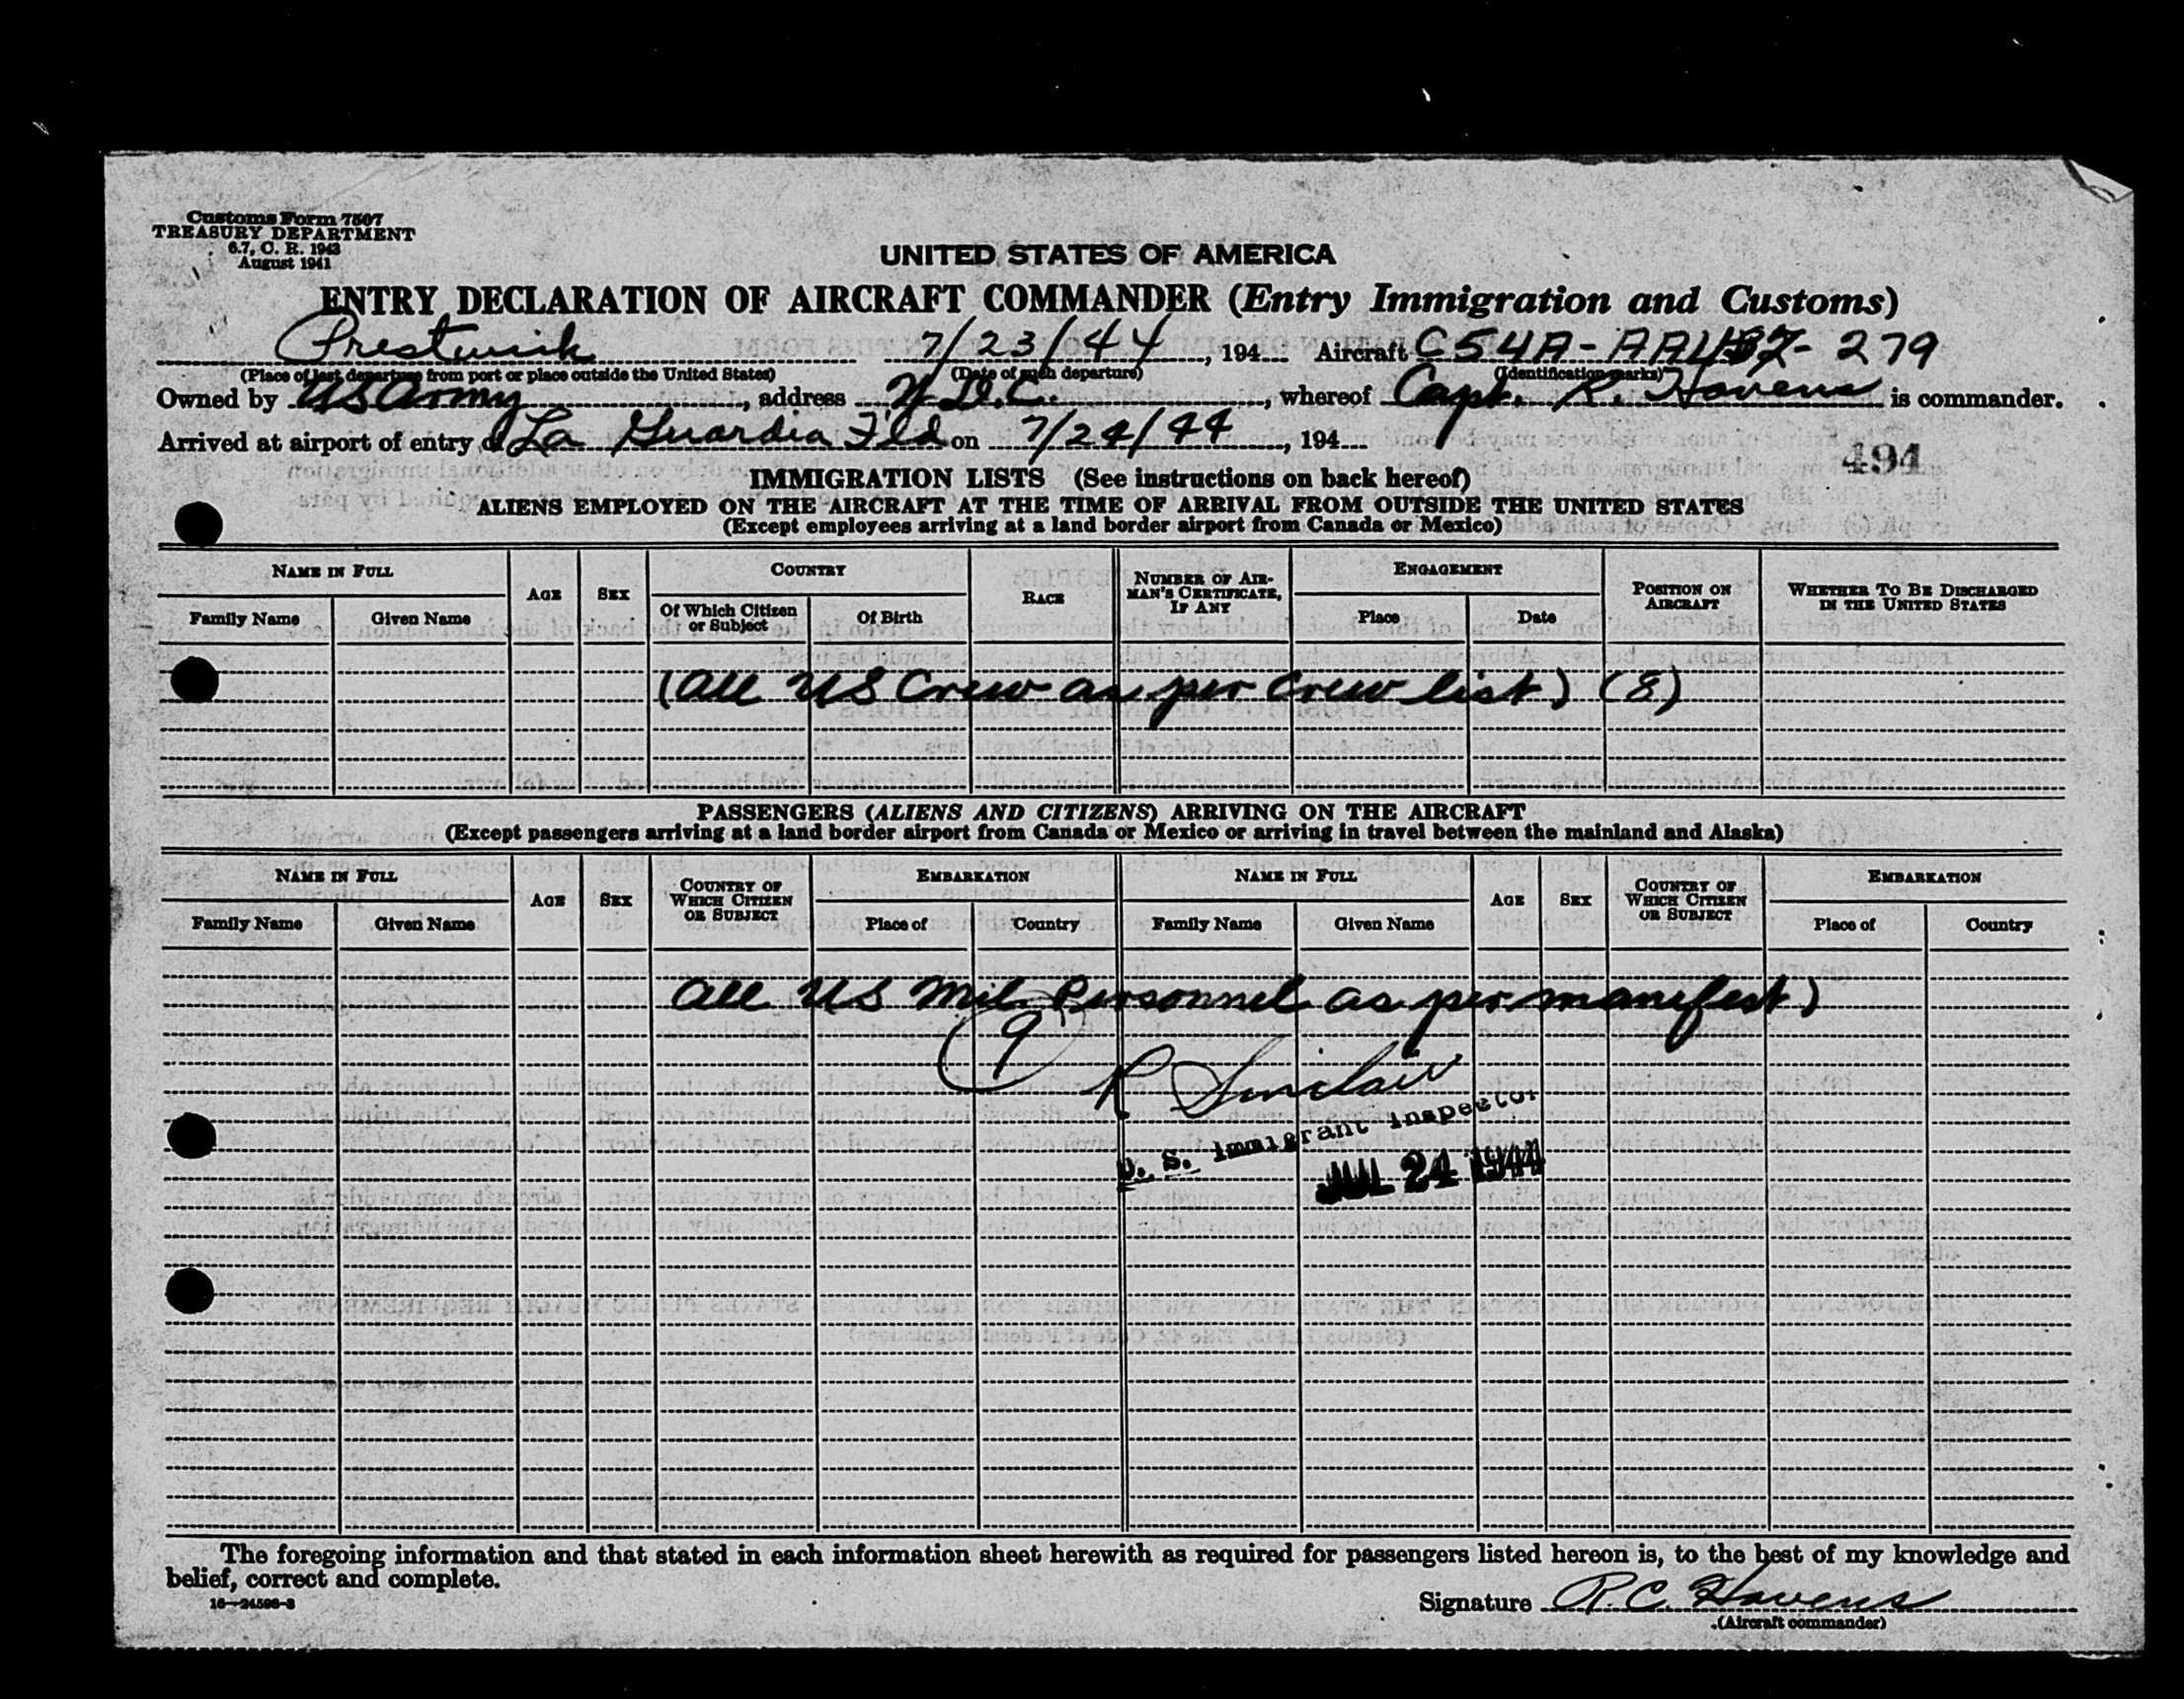 Customs Form 7507
TREASURY DEPARTMENT
6.7, C. R. 1943
August 1941
UNITED STATES OF AMERICA
ENTRY DECLARATION OF AIRCRAFT COMMANDER (Entry Immigration and Customs)
Prestwick 7/23/44, 194 Aircraft C54A- 279
(Place of last departure from port or place outside the United States) (Date of such departure) (Identification marks)
Owned by US Army, address W.D.C., whereof Capt. R. Havens is commander.
Arrived at airport of entry of La Guardia Fld on 7/24/44, 194
494
IMMIGRATION LISTS (See instructions on back hereof)
ALIENS EMPLOYED ON THE AIRCRAFT AT THE TIME OF ARRIVAL FROM OUTSIDE THE UNITED STATES
(Except employees arriving at a land border airport from Canada or Mexico)
NAME IN FULL AGE SEX COUNTRY RACE NUMBER OF AIRMAN'S CERTIFICATE, IF ANY ENGAGEMENT POSITION ON AIRCRAFT WHETHER TO BE DISCHARGED IN THE UNITED STATES
Family Name Given Name Of Which Citizen or Subject Of Birth Place Date
(All US Crew as per Crew list) (8)
PASSENGERS (ALIENS AND CITIZENS) ARRIVING ON THE AIRCRAFT
(Except passengers arriving at a land border airport from Canada or Mexico or arriving in travel between the mainland and Alaska)
NAME IN FULL AGE SEX COUNTRY OF WHICH CITIZEN OR SUBJECT EMBARKATION NAME IN FULL AGE SEX COUNTRY OF WHICH CITIZEN OR SUBJECT EMBARKATION
Family Name Given Name Place of Country Family Name Given Name Place of Country
All US Mil. Personnel as per manifest)
(9)
R Sinclair
U. S. Immigrant Inspector
JUL 24 1944
The foregoing information and that stated in each information sheet herewith as required for passengers listed hereon is, to the best of my knowledge and
belief, correct and complete.
16—24596-3
Signature R.C. Havens
(Aircraft commander)